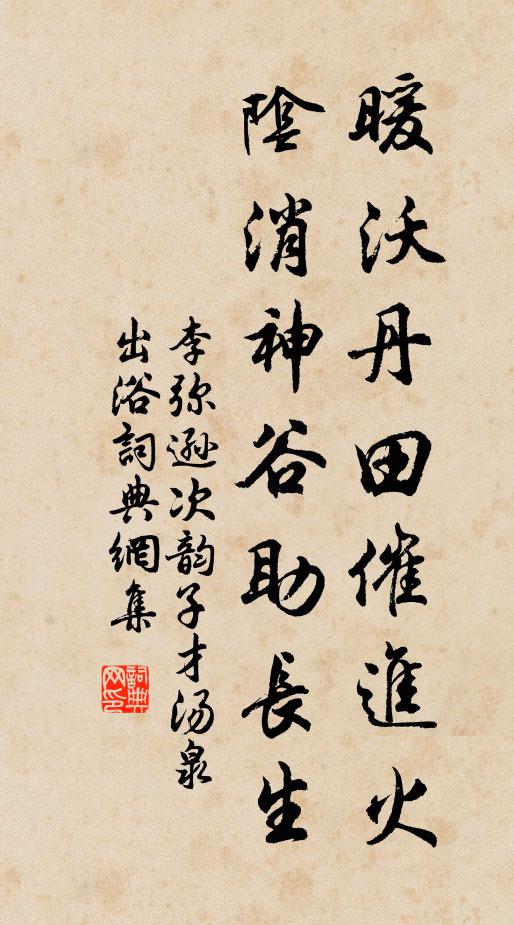 暖沃丹田催進火
陰消神谷助長生
李弥遜次韵子才湯泉
出浴詞典網集
詞典网印